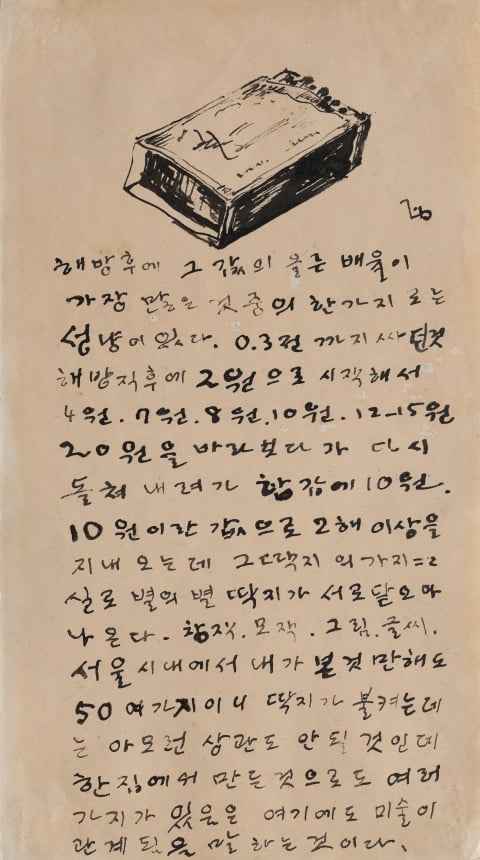 해방후에 그 값의 올른 배율이
가장 많은 것 중의 한가지로는
성냥이 있다. 0.3전 까지 싸던것
해방직후에 2원으로 시작해서
4원.7원.8원.10원.12-15원
20원을 바라보다가 다시
돌쳐 내려가 한갑에 10원.
10원이란 값으로 2해 이상을
지내 오는데 그 딱지의 가지 =
실로 별의 별 딱지가 서로 달으아
나온다. 창작.모작.그림.글씨.
서울 시내에서 내가 본것만해도
50여가지이니 딱지가 불켜는데
는 아모런 상관도 안될것인데
한집에서 만든것으로도 여러
가지가 있음은 여기에도 미술이
관계됨을 말하는것이다.